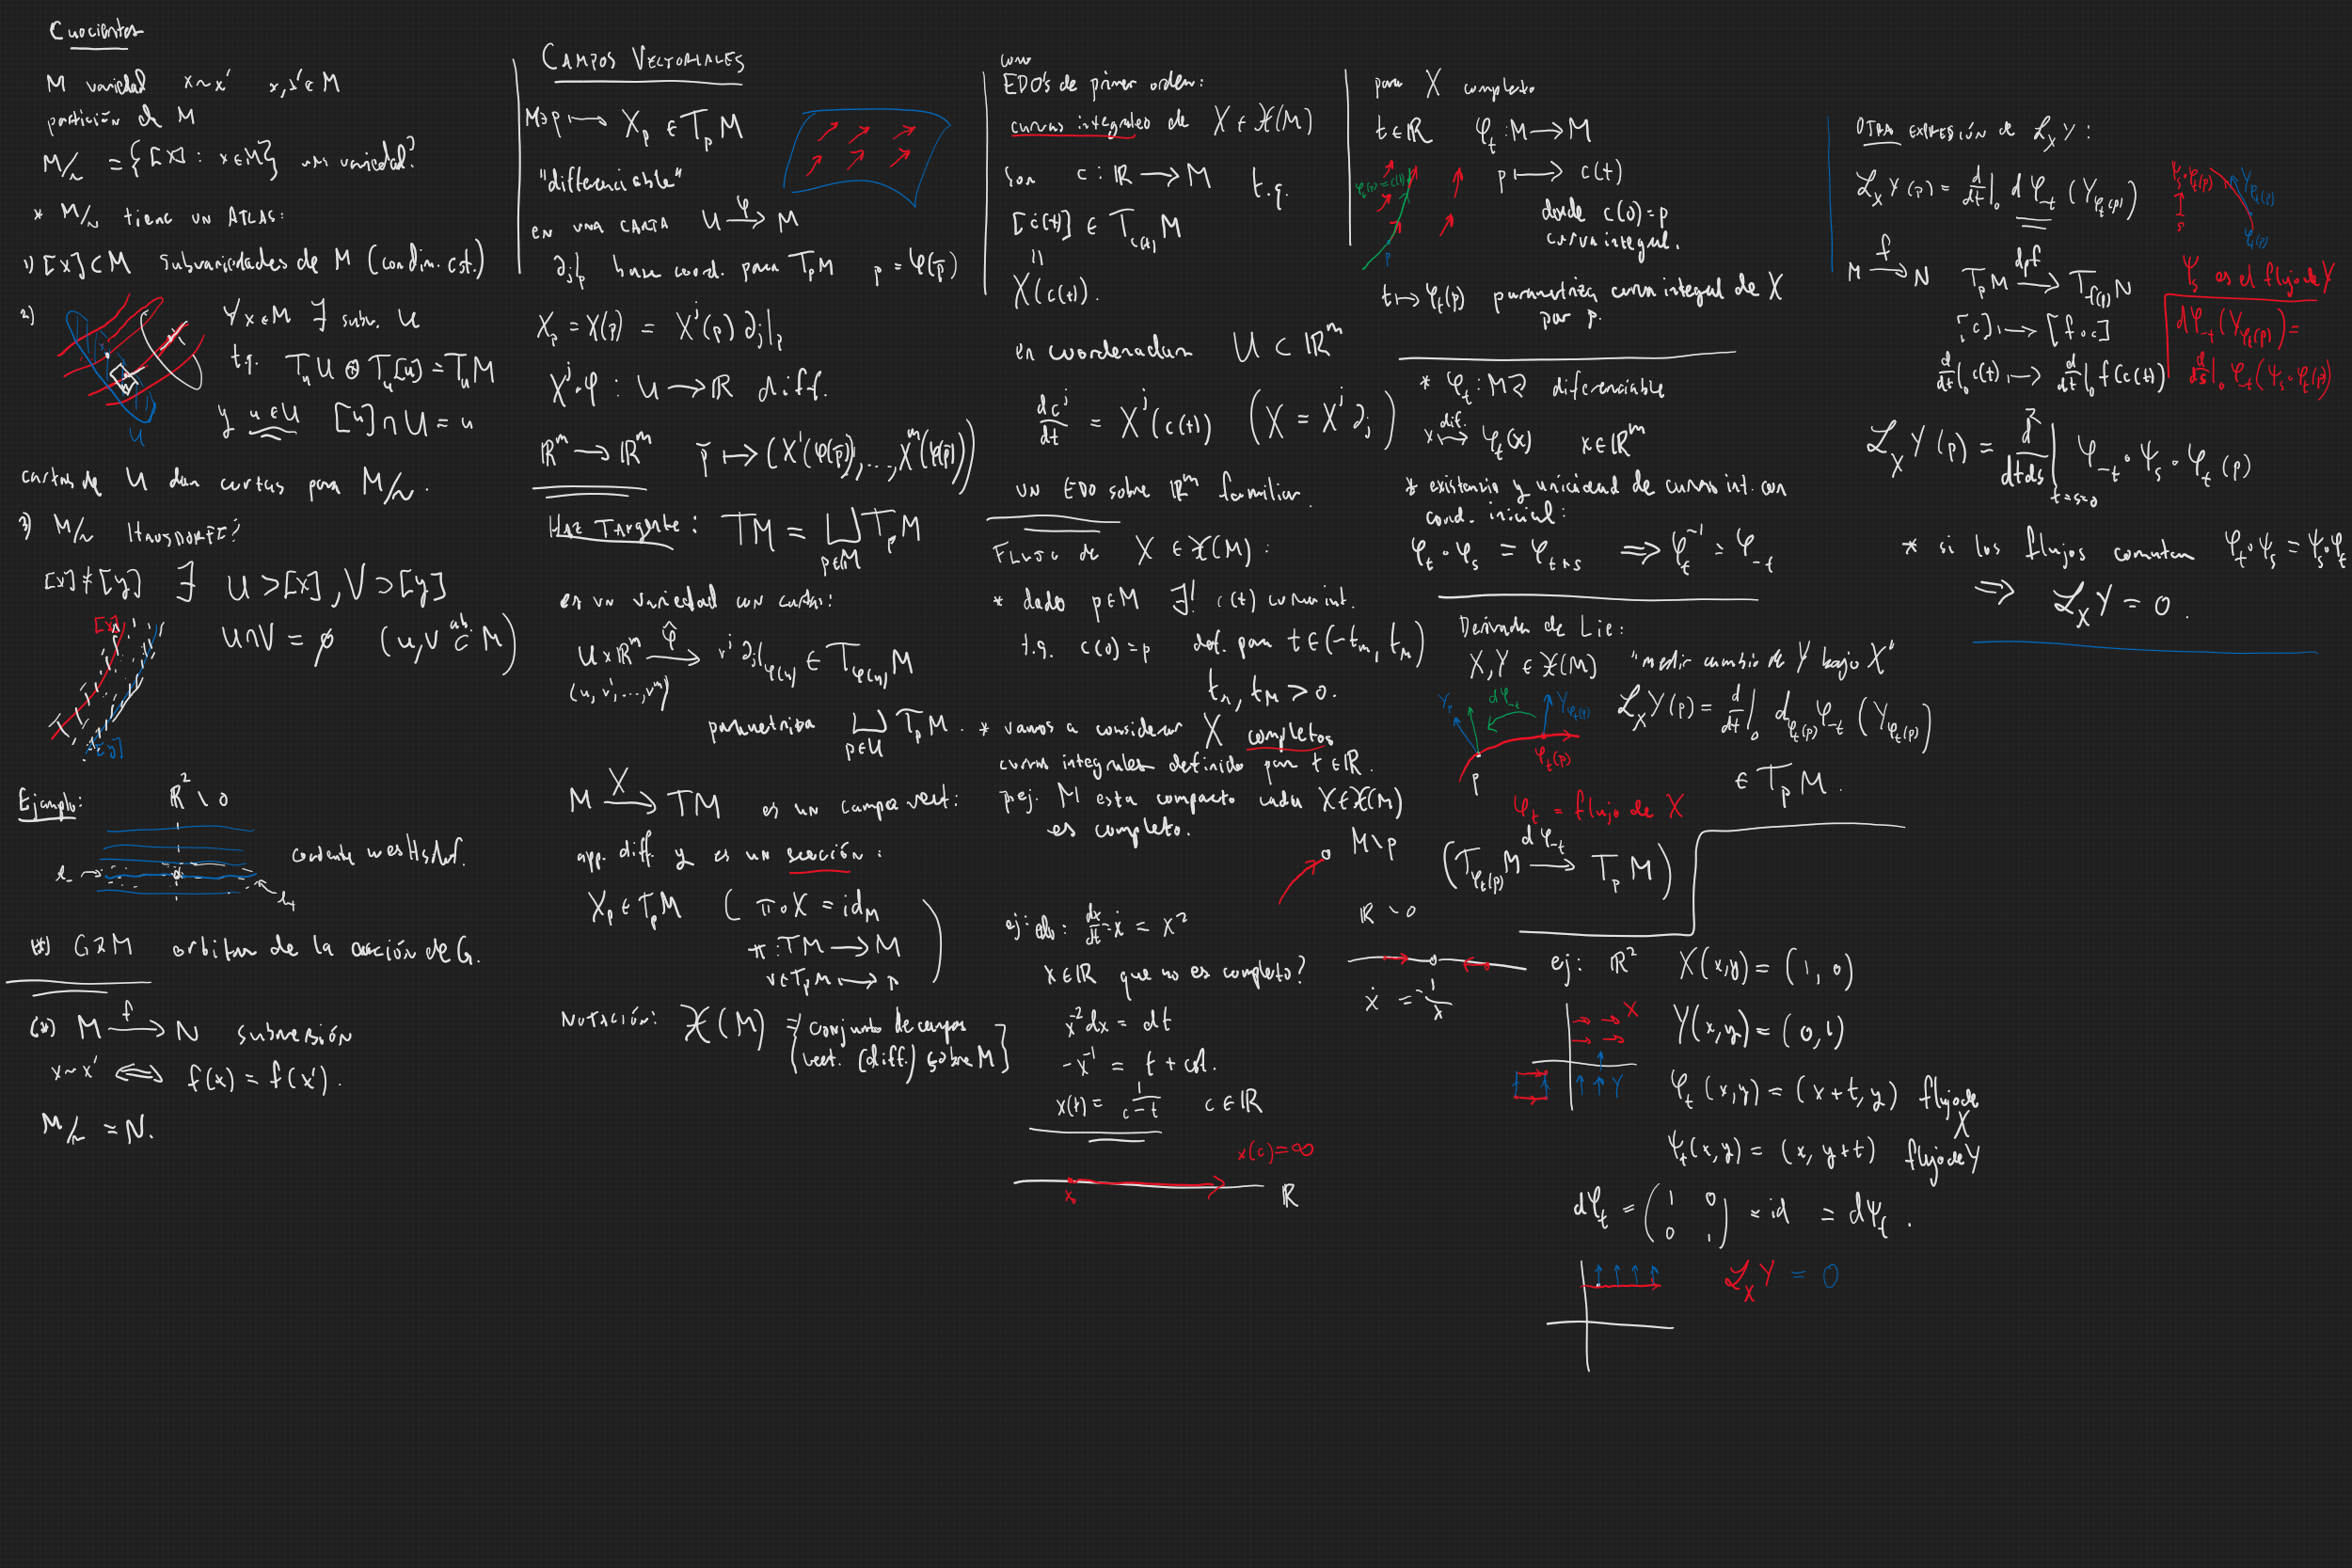 Cuocientes
M variedad x~x' x,x'∈M
partición de M
M/~ = {[x] : x∈M} una variedad?
* M/~ tiene un ATLAS:
1) [x]⊂M subvariedades de M (con dim. cst.)
2) ∀x∈M ∃ subv. U
t.q. T_uU ⊕ T_u[u] = T_uM
y u∈U [u]∩U = u
U
cartas de U dan cartas para M/~.
3) M/~ HAUSDORFF?
[x]≠[y] ∃ U⊃[x], V⊃[y]
U∩V = ∅ (U,V ab. ⊂ M)
[x]
[y]
Ejemplo: ℝ²∖0
cociente no es Hsdorf.
l₋ →
l₊
(*) G⤾M orbitas de la acción de G.
(*) M —f→ N submersión
x~x' ⟺ f(x) = f(x').
M/~ = N.
CAMPOS VECTORIALES
M∋p ⟼ X_p ∈ T_pM
"differenciable"
EN UNA CARTA U —φ→ M
∂_j|_p base coord. para T_pM p = φ(p̄)
X_p = X(p) = X^j(p) ∂_j|_p
X^j∘φ : U → ℝ diff.
ℝ^m → ℝ^m p̄ ⟼ (X¹(φ(p̄)),...,X^m(φ(p̄)))
HAZ Tangente: TM = ⊔_{p∈M} T_pM
es un variedad con cartas:
U×ℝ^m —φ̂→ v^j ∂_j|_{φ(u)} ∈ T_{φ(u)}M
(u, v¹,...,v^m)
parametriza ⊔_{p∈U} T_pM.
M —X→ TM es un campo vect:
app. diff. y es un sección:
X_p ∈ T_pM ( π∘X = id_M
π : TM → M
v∈T_pM ⟼ p )
NOTACIÓN: 𝔛(M) = {conjunto de campos
vect. (diff.) sobre M}
como
EDO's de primer orden:
curvas integrales de X∈𝔛(M)
son c : ℝ → M t.q.
[ċ(t)] ∈ T_{c(t)}M
=
X(c(t)).
en coordenadas U ⊂ ℝ^m
dc^j/dt = X^j(c(t)) (X = X^j ∂_j)
un EDO sobre ℝ^m familiar.
FLUJO de X∈𝔛(M):
* dado p∈M ∃! c(t) curva int.
t.q. c(0)=p def. para t∈(-t_m, t_M)
t_m, t_M > 0.
* vamos a considerar X completos
curvas integrales definido para t∈ℝ.
p.ej. M esta compacto cada X∈𝔛(M)
es completo.
M∖p
ej: edo: dx/dt = ẋ = x²
x∈ℝ que no es completo?
x⁻²dx = dt
-x⁻¹ = t + cst.
x(t) = 1/(c-t) c∈ℝ
x(c)=∞
x₀
ℝ
ℝ∖0
ẋ = -1/x
para X completo
t∈ℝ φ_t : M → M
p ⟼ c(t)
donde c(0)=p
curva integral.
φ_t(p)=c(t)
p
t ↦ φ_t(p) parametriza curva integral de X
por p.
* φ_t : M⤾ diferenciable
x ⟼ dif. φ_t(x) x∈ℝ^m
* existencia y unicidad de curvas int. con
cond. inicial:
φ_t∘φ_s = φ_{t+s} ⟹ φ_t⁻¹ = φ_{-t}
Derivada de Lie:
X,Y∈𝔛(M) "medir cambio de Y bajo X"
ℒ_X Y(p) = d/dt|₀ d_{φ_t(p)}φ_{-t} (Y_{φ_t(p)})
∈ T_pM.
Y_p
dφ_{-t}
Y_{φ_t(p)}
φ_t(p)
p
φ_t = flujo de X
(T_{φ_t(p)}M —dφ_{-t}→ T_pM)
ej: ℝ² X(x,y) = (1, 0)
Y(x,y) = (0,1)
X
Y
φ_t(x,y) = (x+t, y) flujo de X
ψ_t(x,y) = (x, y+t) flujo de Y
dφ_t = (1 0
0 1) = id = dψ_t.
ℒ_X Y = 0
OTRA EXPRESIÓN de ℒ_X Y:
ℒ_X Y(p) = d/dt|₀ dφ_{-t} (Y_{φ_t(p)})
M —f→ N T_pM —d_pf→ T_{f(p)}N
[c] ⟼ [f∘c]
d/dt|₀ c(t) ⟼ d/dt|₀ f(c(t))
ψ_s∘φ_t(p)
s
Y_{φ_t(p)}
φ_t(p)
ψ_s es el flujo de Y
dφ_{-t}(Y_{φ_t(p)}) =
d/ds|₀ φ_{-t}(ψ_s∘φ_t(p))
ℒ_X Y(p) = d²/dtds|_{t=s=0} φ_{-t}∘ψ_s∘φ_t(p)
* si los flujos comutan φ_t∘ψ_s = ψ_s∘φ_t
⟹ ℒ_X Y = 0.